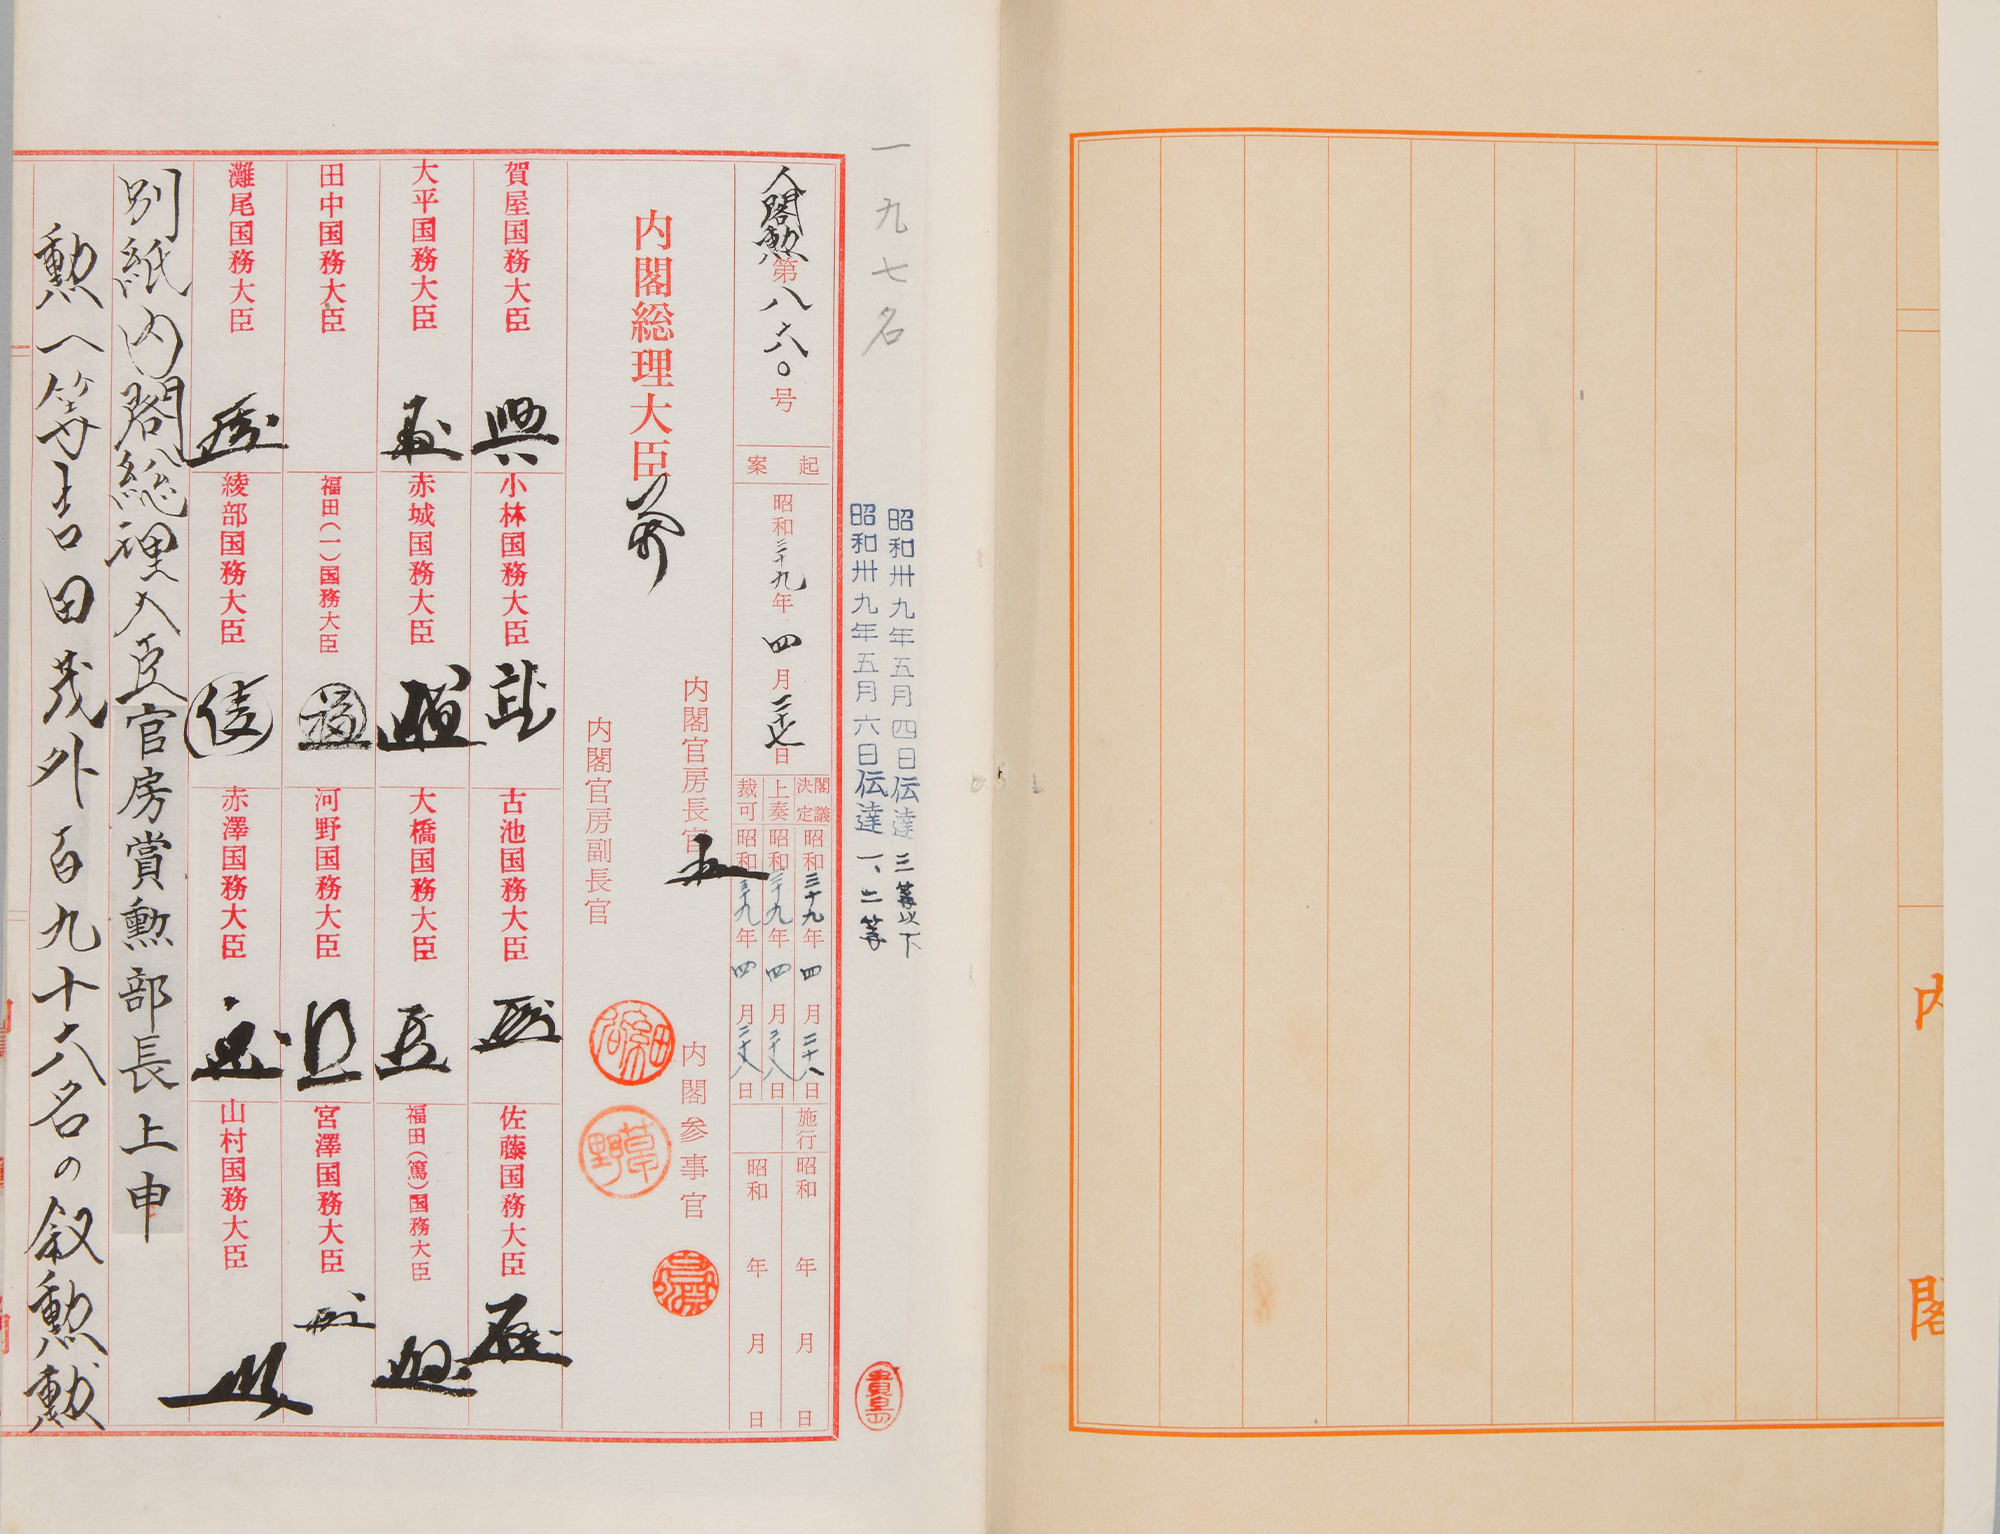 内閣
一九七名
昭和卅九年五月四日伝達 三等以下
昭和卅九年五月六日伝達 一、二等
人閣勲第八六〇号
起案
昭和三十九年四月二十七日
閣議決定 昭和三十九年四月二十八日
上奏 昭和三十九年四月二十八日
裁可 昭和三十九年四月二十八日
施行 昭和 年 月 日
昭和 年 月 日
内閣総理大臣
内閣官房長官
内閣参事官
内閣官房副長官
細谷
草野
賀屋国務大臣
小林国務大臣
古池国務大臣
佐藤国務大臣
大平国務大臣
赤城国務大臣
大橋国務大臣
福田(篤)国務大臣
田中国務大臣
福田(一)国務大臣
河野国務大臣
宮澤国務大臣
灘尾国務大臣
綾部国務大臣
赤澤国務大臣
山村国務大臣
別紙内閣総理大臣官房賞勲部長上申
勲一等吉田茂外百九十六名の叙勲